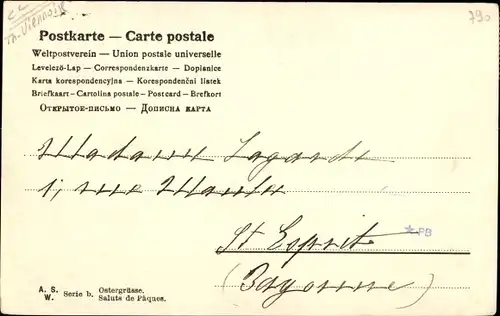 Th. Viennois
790
Postkarte — Carte postale
Weltpostverein — Union postale universelle
Levelező-Lap — Correspondenzkarte — Dopisnice
Karta korespondencyjna — Korespondenční lístek
Briefkaart — Cartolina postale — Postcard — Brefkort
Открытое-письмо — Дописна карта
Madame Lagarde
1, rue Maubec
St Esprit
*PB
(Bayonne)
A. S. W. Serie b. Ostergrüsse.
Saluts de Pâques.